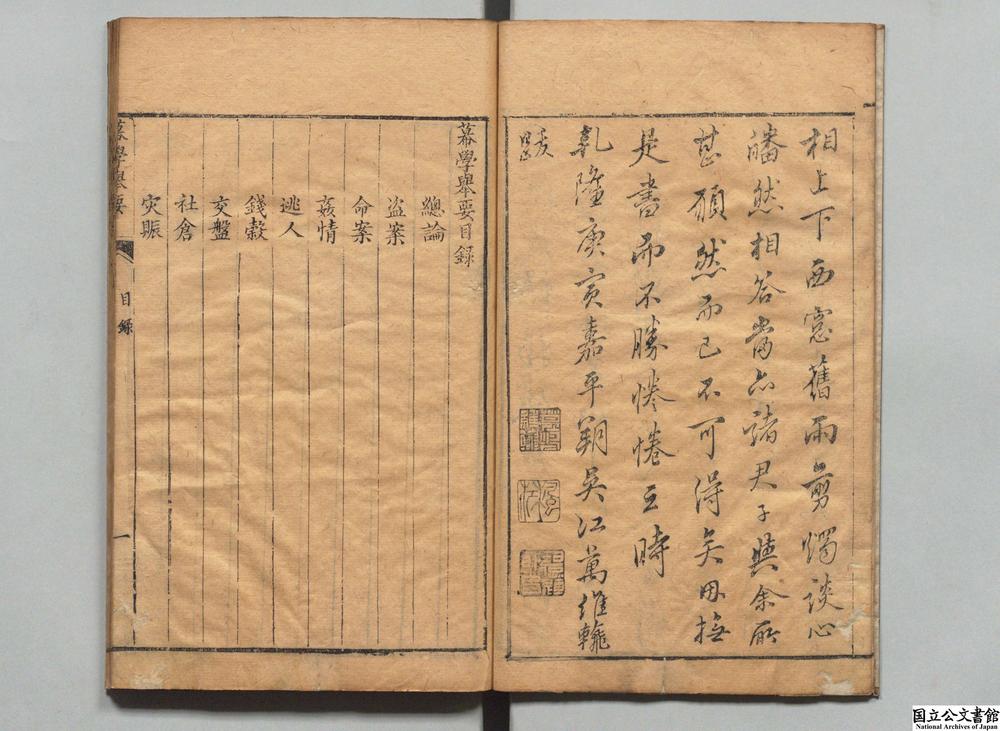 相上下西窓舊雨剪燭談心
皤然相答當亦諸君子與余所
甚願然而已不可得矣因撫
是書而不勝惓惓云時
乾隆庚寅嘉平朔吳江萬維翰
幕學舉要目錄
總論
盗案
命案
姦情
逃人
錢穀
交盤
社倉
灾賑
幕學舉要
目錄
一
国立公文書館
National Archives of Japan